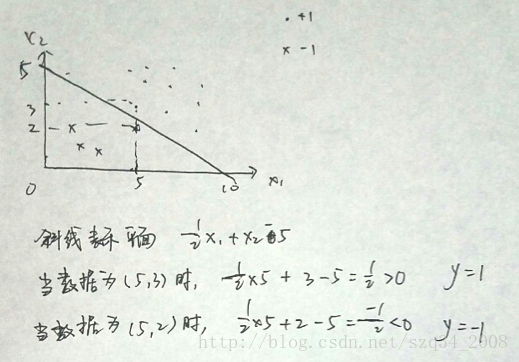 · +1
x -1
x2
5
3
2
0
5
10
x1
斜线表示平面 1/2 x1 + x2 = 5
当数据为(5,3)时, 1/2×5 + 3 - 5 = 1/2 > 0 y = 1
当数据为(5,2)时, 1/2×5 + 2 - 5 = -1/2 < 0 y = -1
http://blog.csdn.net/szq34_2008